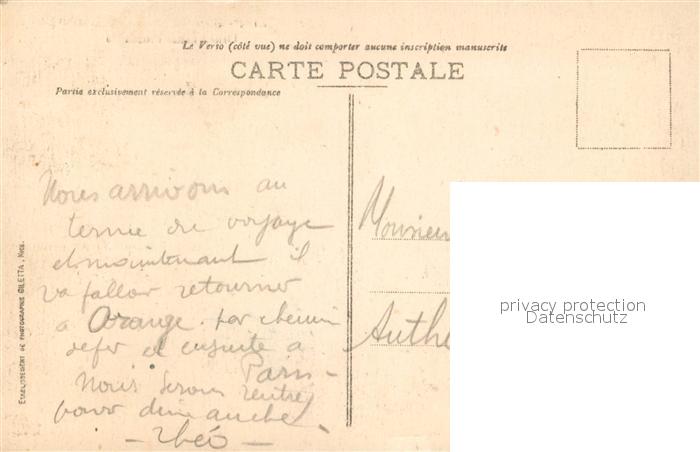 Le Verso (côté vue) ne doit comporter aucune inscription manuscrite
CARTE POSTALE
Partie exclusivement réservée à la Correspondance
Nous arrivons au
terme du voyage
et maintenant il
va falloir retourner
à Orange par chemin
de fer et ensuite à
Paris -
Nous serons rentrés
pour dimanche
- Théo -
Monsieur
Authe
ETABLISSEMENT DE PHOTOGRAPHIE GILETTA, NICE.
privacy protection
Datenschutz